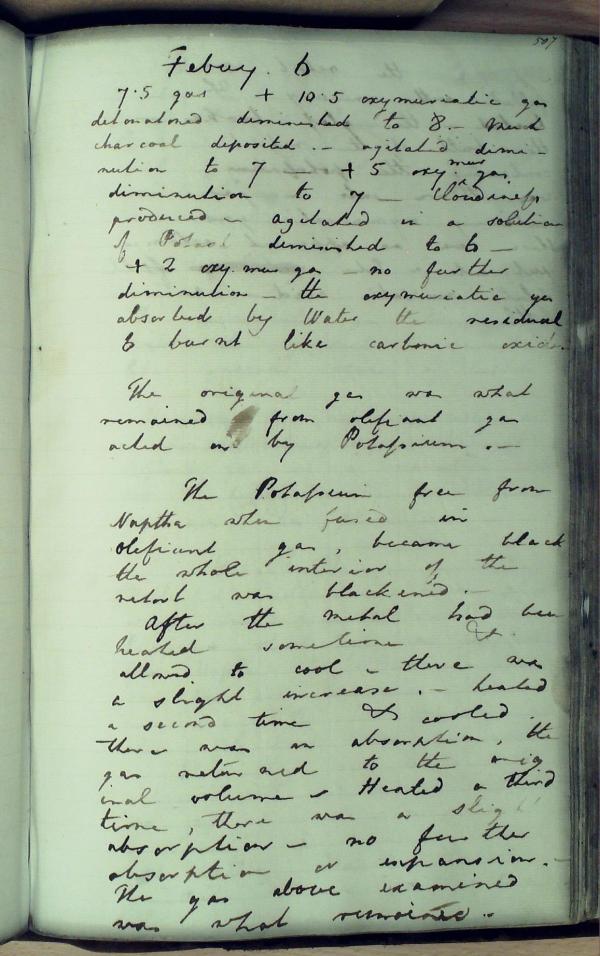 507
Febuy. 6
7.5 gas + 10.5 oxymuriatic gas
detonationed diminished to 8 - Much
charcoal deposited. - agitated dimi-
nution to 7 - + 5 oxy. mur gas.
diminution to 7 - Cloudiness
produced - agitated in a solution
of Potash diminished to 6 -
+ 2 oxy. mur gas - no further
diminution - the oxymuriatic gas
absorbed by Water the residual
6 burnt like carbonic oxide.
The original gas was what
remained from olefiant gas
acted on by Potassium. -
The Potassium free from
Naptha when fused in
olefiant gas, became black
the whole interior of the
retort was blackened. -
After the metal had been
heated sometime &
allowed to cool - there was
a slight increase. - heated
a second time & cooled.
there was an absorption, the
gas returned to the orig
inal volume - Heated a third
time, there was a slight
absorption - no further
absorption or expansion. -
The gas above examined
was what remained. -